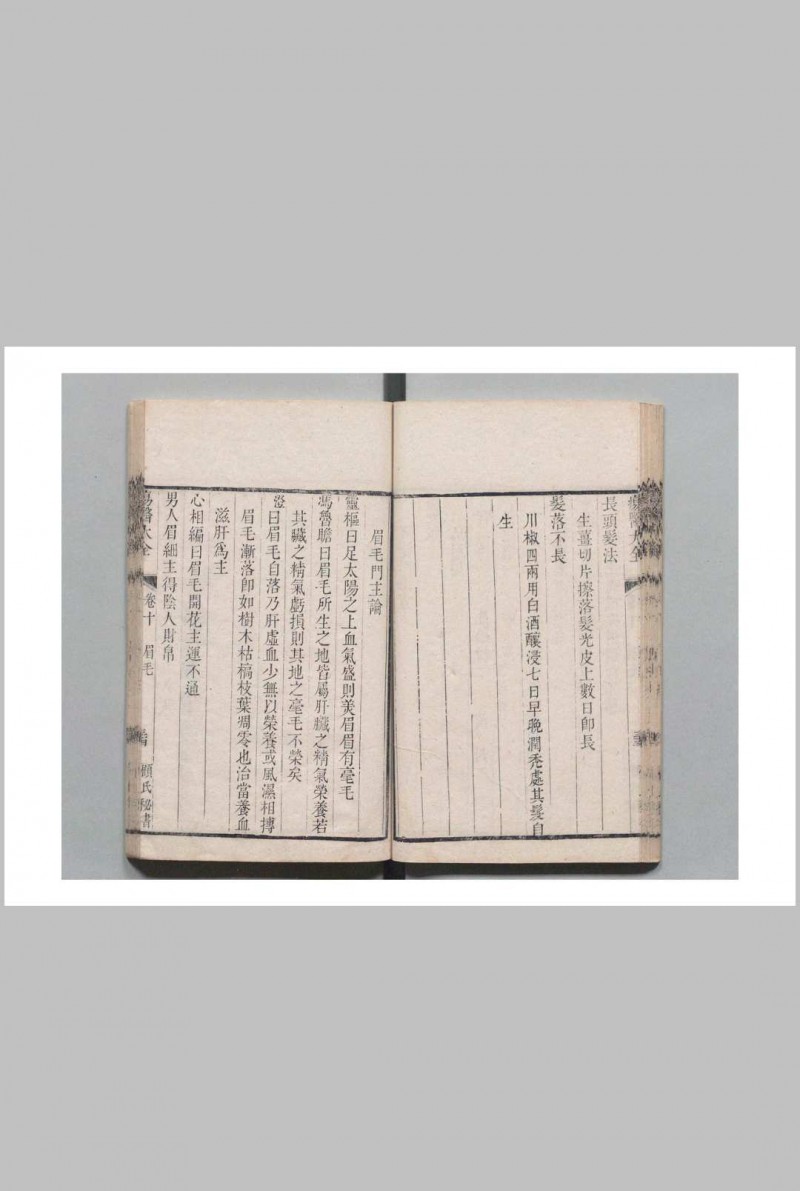 長頭髮法
生薑切片擦落髮光皮上數日卽長
髮落不長
川椒四兩用白酒釀浸七日早晚潤禿處其髮自
生
眉毛門主論
靈樞曰足太陽之上血氣盛則美眉眉有毫毛
馮魯瞻曰眉毛所生之地皆屬肝臟之精氣榮養若
其臟之精氣虧損則其地之毫毛不榮矣
澄曰眉毛自落乃肝虛血少無以榮養或風濕相摶
眉毛漸落卽如樹木枯槁枝葉凋零也治當養血
滋肝爲主
心相編曰眉毛開花主運不通
男人眉細主得陰人財帛
瘍醫大全
卷十 眉毛
顧氏秘書